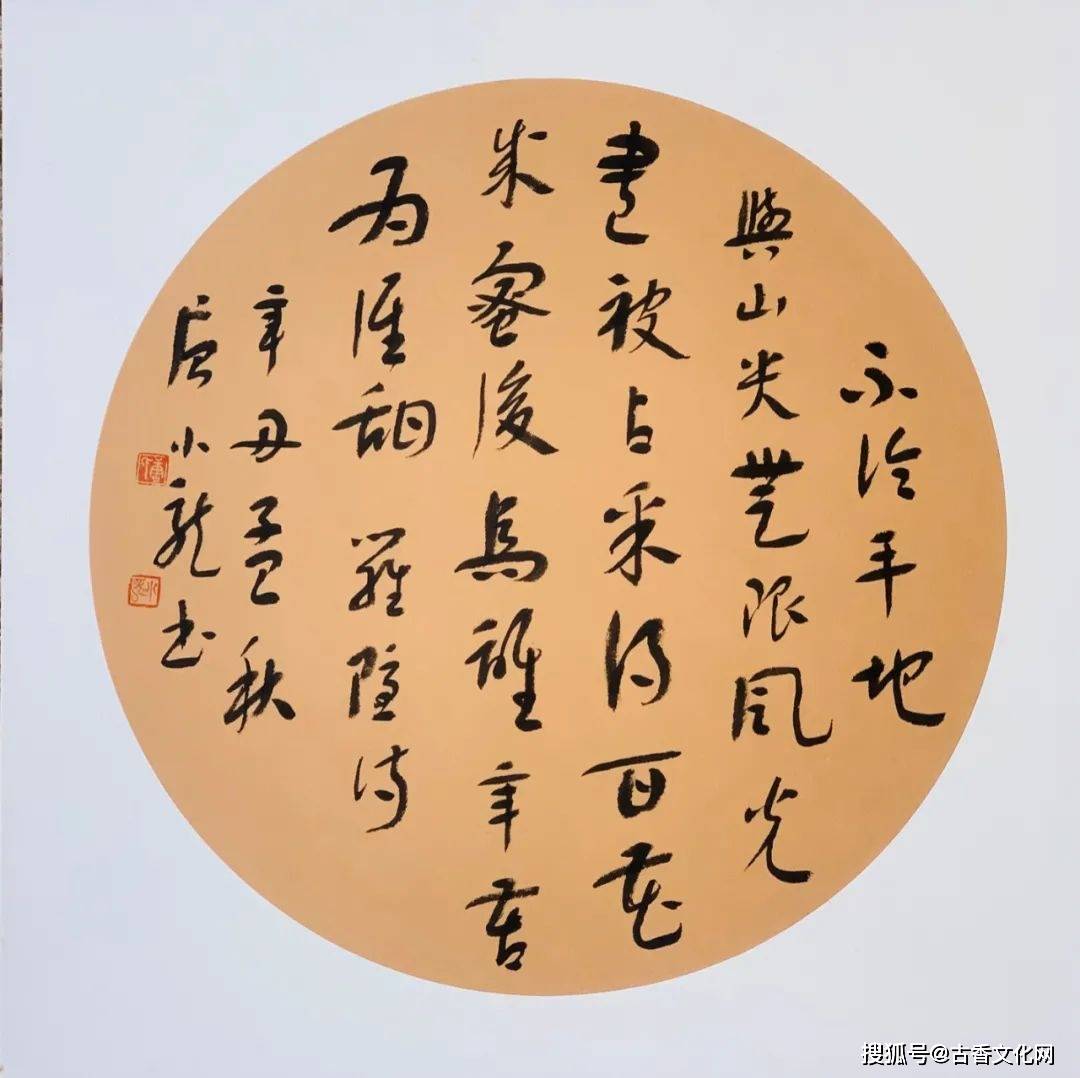 不論平地
與山尖無限風光
盡被占采得百花
成蜜後為誰辛苦
為誰甜 羅隱詩
辛丑孟秋
盧小龍书
搜狐号@古香文化网